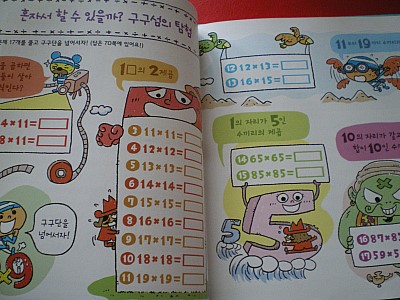 혼자서 할 수 있을까? 구구섬의 탐험
제 17개를 풀고 구구단을 넘어서자! (답은 70쪽에 있어요!)
4×11=
8×11=
구구단을
넘어서자!
×9
1□의 2제곱
③ 11×11=
④ 12×12=
⑤ 13×13=
⑥ 14×14=
⑦ 15×15=
⑧ 16×16=
⑨ 17×17=
⑩ 18×18=
⑪ 19×19=
⑫ 12×13=
⑬ 16×15=
1의 자리가 5인
수끼리의 제곱
⑭ 65×65=
⑮ 85×85=
5
11
19
10의 자리가
합이 10인
⑯ 87×8